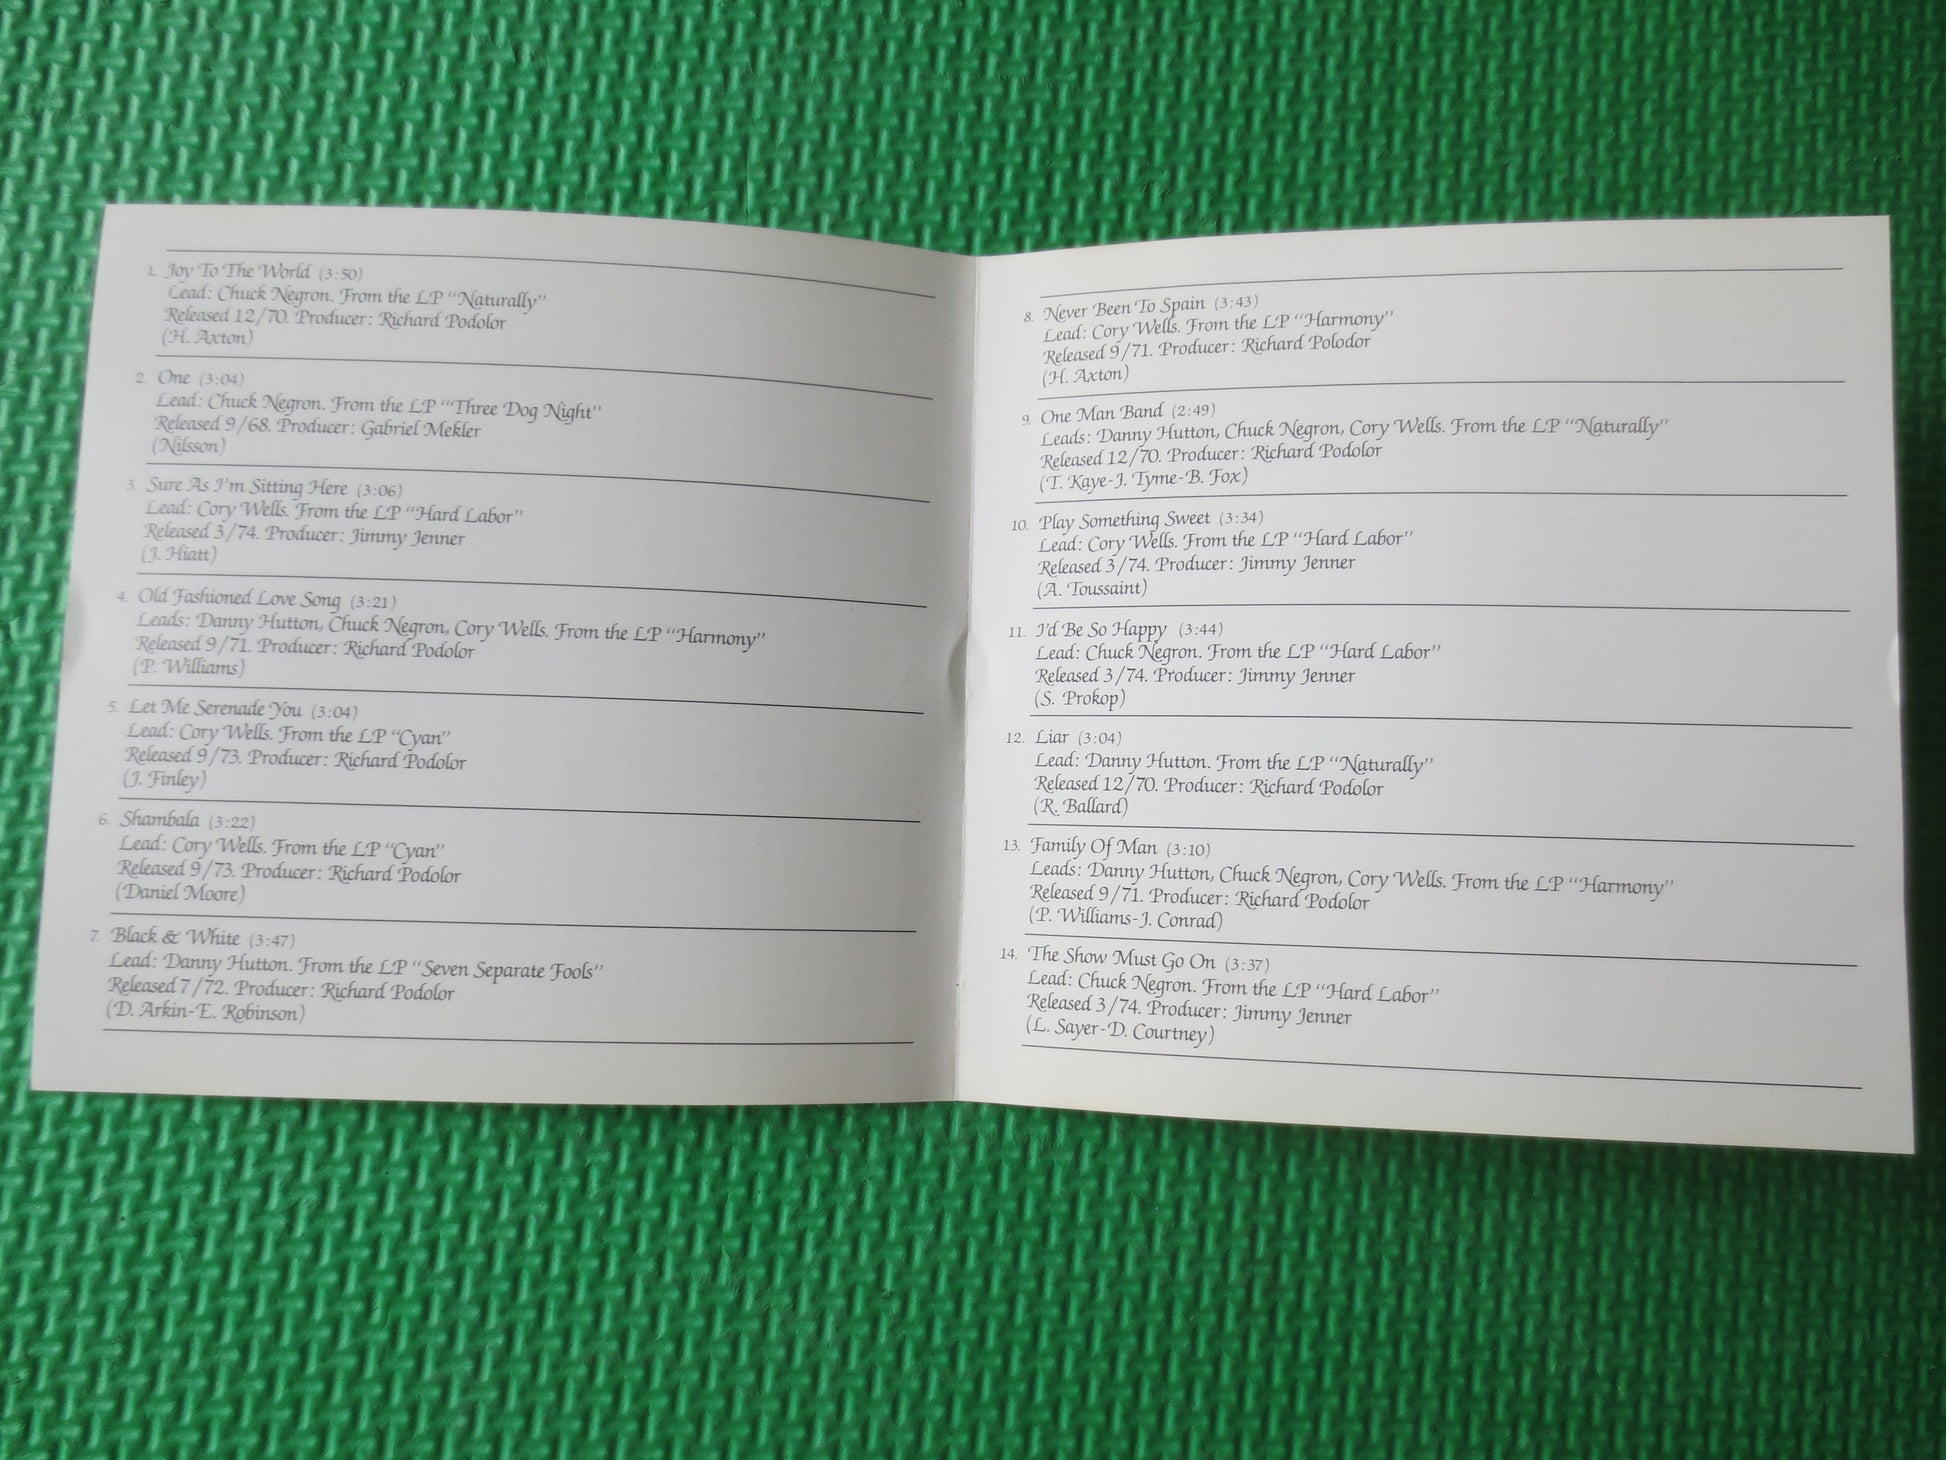 1. Joy To The World (3:50)
Lead: Chuck Negron. From the LP “Naturally”
Released 12/70. Producer: Richard Podolor
(H. Axton)
2. One (3:04)
Lead: Chuck Negron. From the LP “Three Dog Night”
Released 9/68. Producer: Gabriel Mekler
(Nilsson)
3. Sure As I'm Sitting Here (3:06)
Lead: Cory Wells. From the LP “Hard Labor”
Released 3/74. Producer: Jimmy Jenner
(J. Hiatt)
4. Old Fashioned Love Song (3:21)
Leads: Danny Hutton, Chuck Negron, Cory Wells. From the LP “Harmony”
Released 9/71. Producer: Richard Podolor
(P. Williams)
5. Let Me Serenade You (3:04)
Lead: Cory Wells. From the LP “Cyan”
Released 9/73. Producer: Richard Podolor
(J. Finley)
6. Shambala (3:22)
Lead: Cory Wells. From the LP “Cyan”
Released 9/73. Producer: Richard Podolor
(Daniel Moore)
7. Black & White (3:47)
Lead: Danny Hutton. From the LP “Seven Separate Fools”
Released 7/72. Producer: Richard Podolor
(D. Arkin-E. Robinson)
8. Never Been To Spain (3:43)
Lead: Cory Wells. From the LP “Harmony”
Released 9/71. Producer: Richard Polodor
(H. Axton)
9. One Man Band (2:49)
Leads: Danny Hutton, Chuck Negron, Cory Wells. From the LP “Naturally”
Released 12/70. Producer: Richard Podolor
(T. Kaye-J. Tyme-B. Fox)
10. Play Something Sweet (3:34)
Lead: Cory Wells. From the LP “Hard Labor”
Released 3/74. Producer: Jimmy Jenner
(A. Toussaint)
11. I'd Be So Happy (3:44)
Lead: Chuck Negron. From the LP “Hard Labor”
Released 3/74. Producer: Jimmy Jenner
(S. Prokop)
12. Liar (3:04)
Lead: Danny Hutton. From the LP “Naturally”
Released 12/70. Producer: Richard Podolor
(R. Ballard)
13. Family Of Man (3:10)
Leads: Danny Hutton, Chuck Negron, Cory Wells. From the LP “Harmony”
Released 9/71. Producer: Richard Podolor
(P. Williams-J. Conrad)
14. The Show Must Go On (3:37)
Lead: Chuck Negron. From the LP “Hard Labor”
Released 3/74. Producer: Jimmy Jenner
(L. Sayer-D. Courtney)